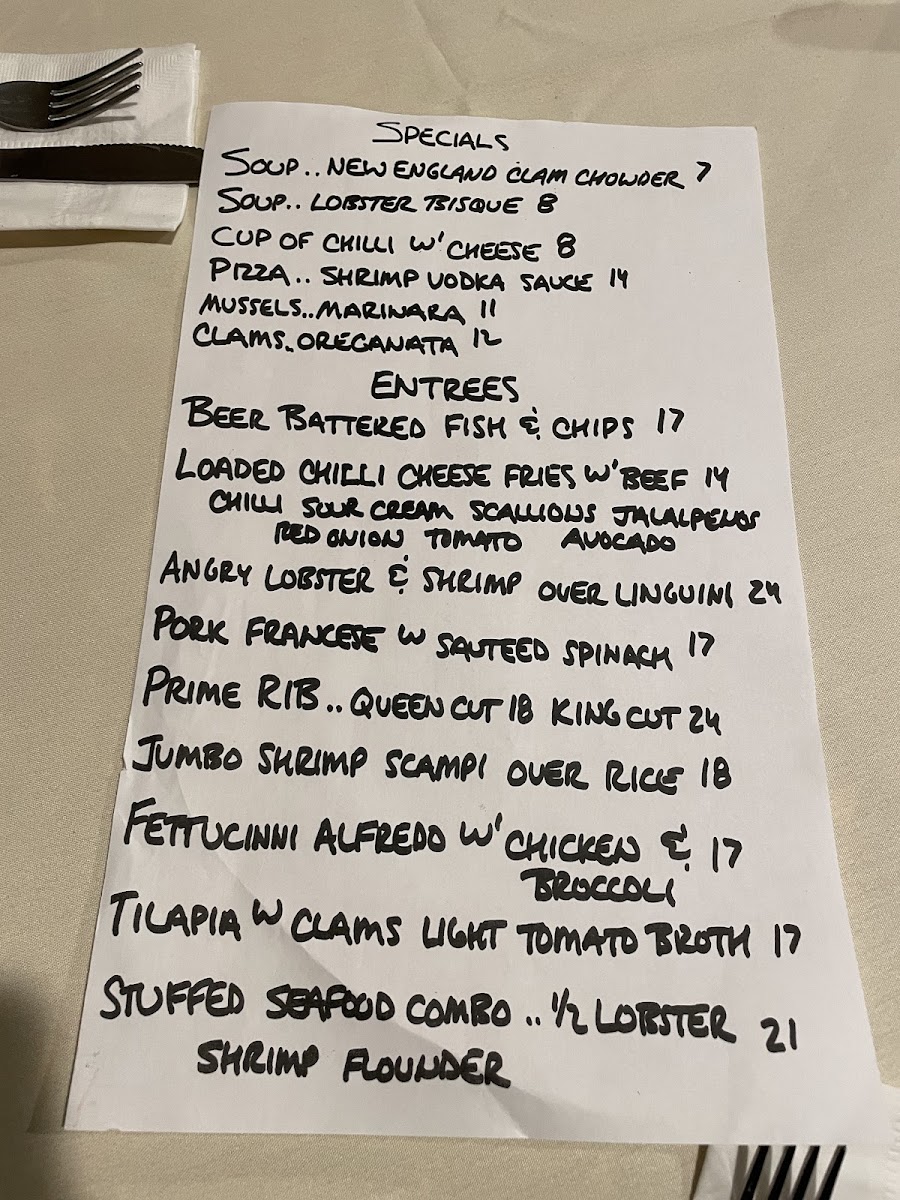 SPECIALS
SOUP.. NEW ENGLAND CLAM CHOWDER 7
SOUP.. LOBSTER BISQUE 8
CUP OF CHILLI W' CHEESE 8
PIZZA.. SHRIMP VODKA SAUCE 14
MUSSELS..MARINARA 11
CLAMS..OREGANATA 12
ENTREES
BEER BATTERED FISH & CHIPS 17
LOADED CHILLI CHEESE FRIES W' BEEF 14
CHILLI SOUR CREAM SCALLIONS JALALPENOS
RED ONION TOMATO AVOCADO
ANGRY LOBSTER & SHRIMP OVER LINGUINI 24
PORK FRANCESE W SAUTEED SPINACH 17
PRIME RIB.. QUEEN CUT 18 KING CUT 24
JUMBO SHRIMP SCAMPI OVER RICE 18
FETTUCINNI ALFREDO W' CHICKEN & 17
BROCCOLI
TILAPIA W CLAMS LIGHT TOMATO BROTH 17
STUFFED SEAFOOD COMBO .. 1/2 LOBSTER 21
SHRIMP FLOUNDER